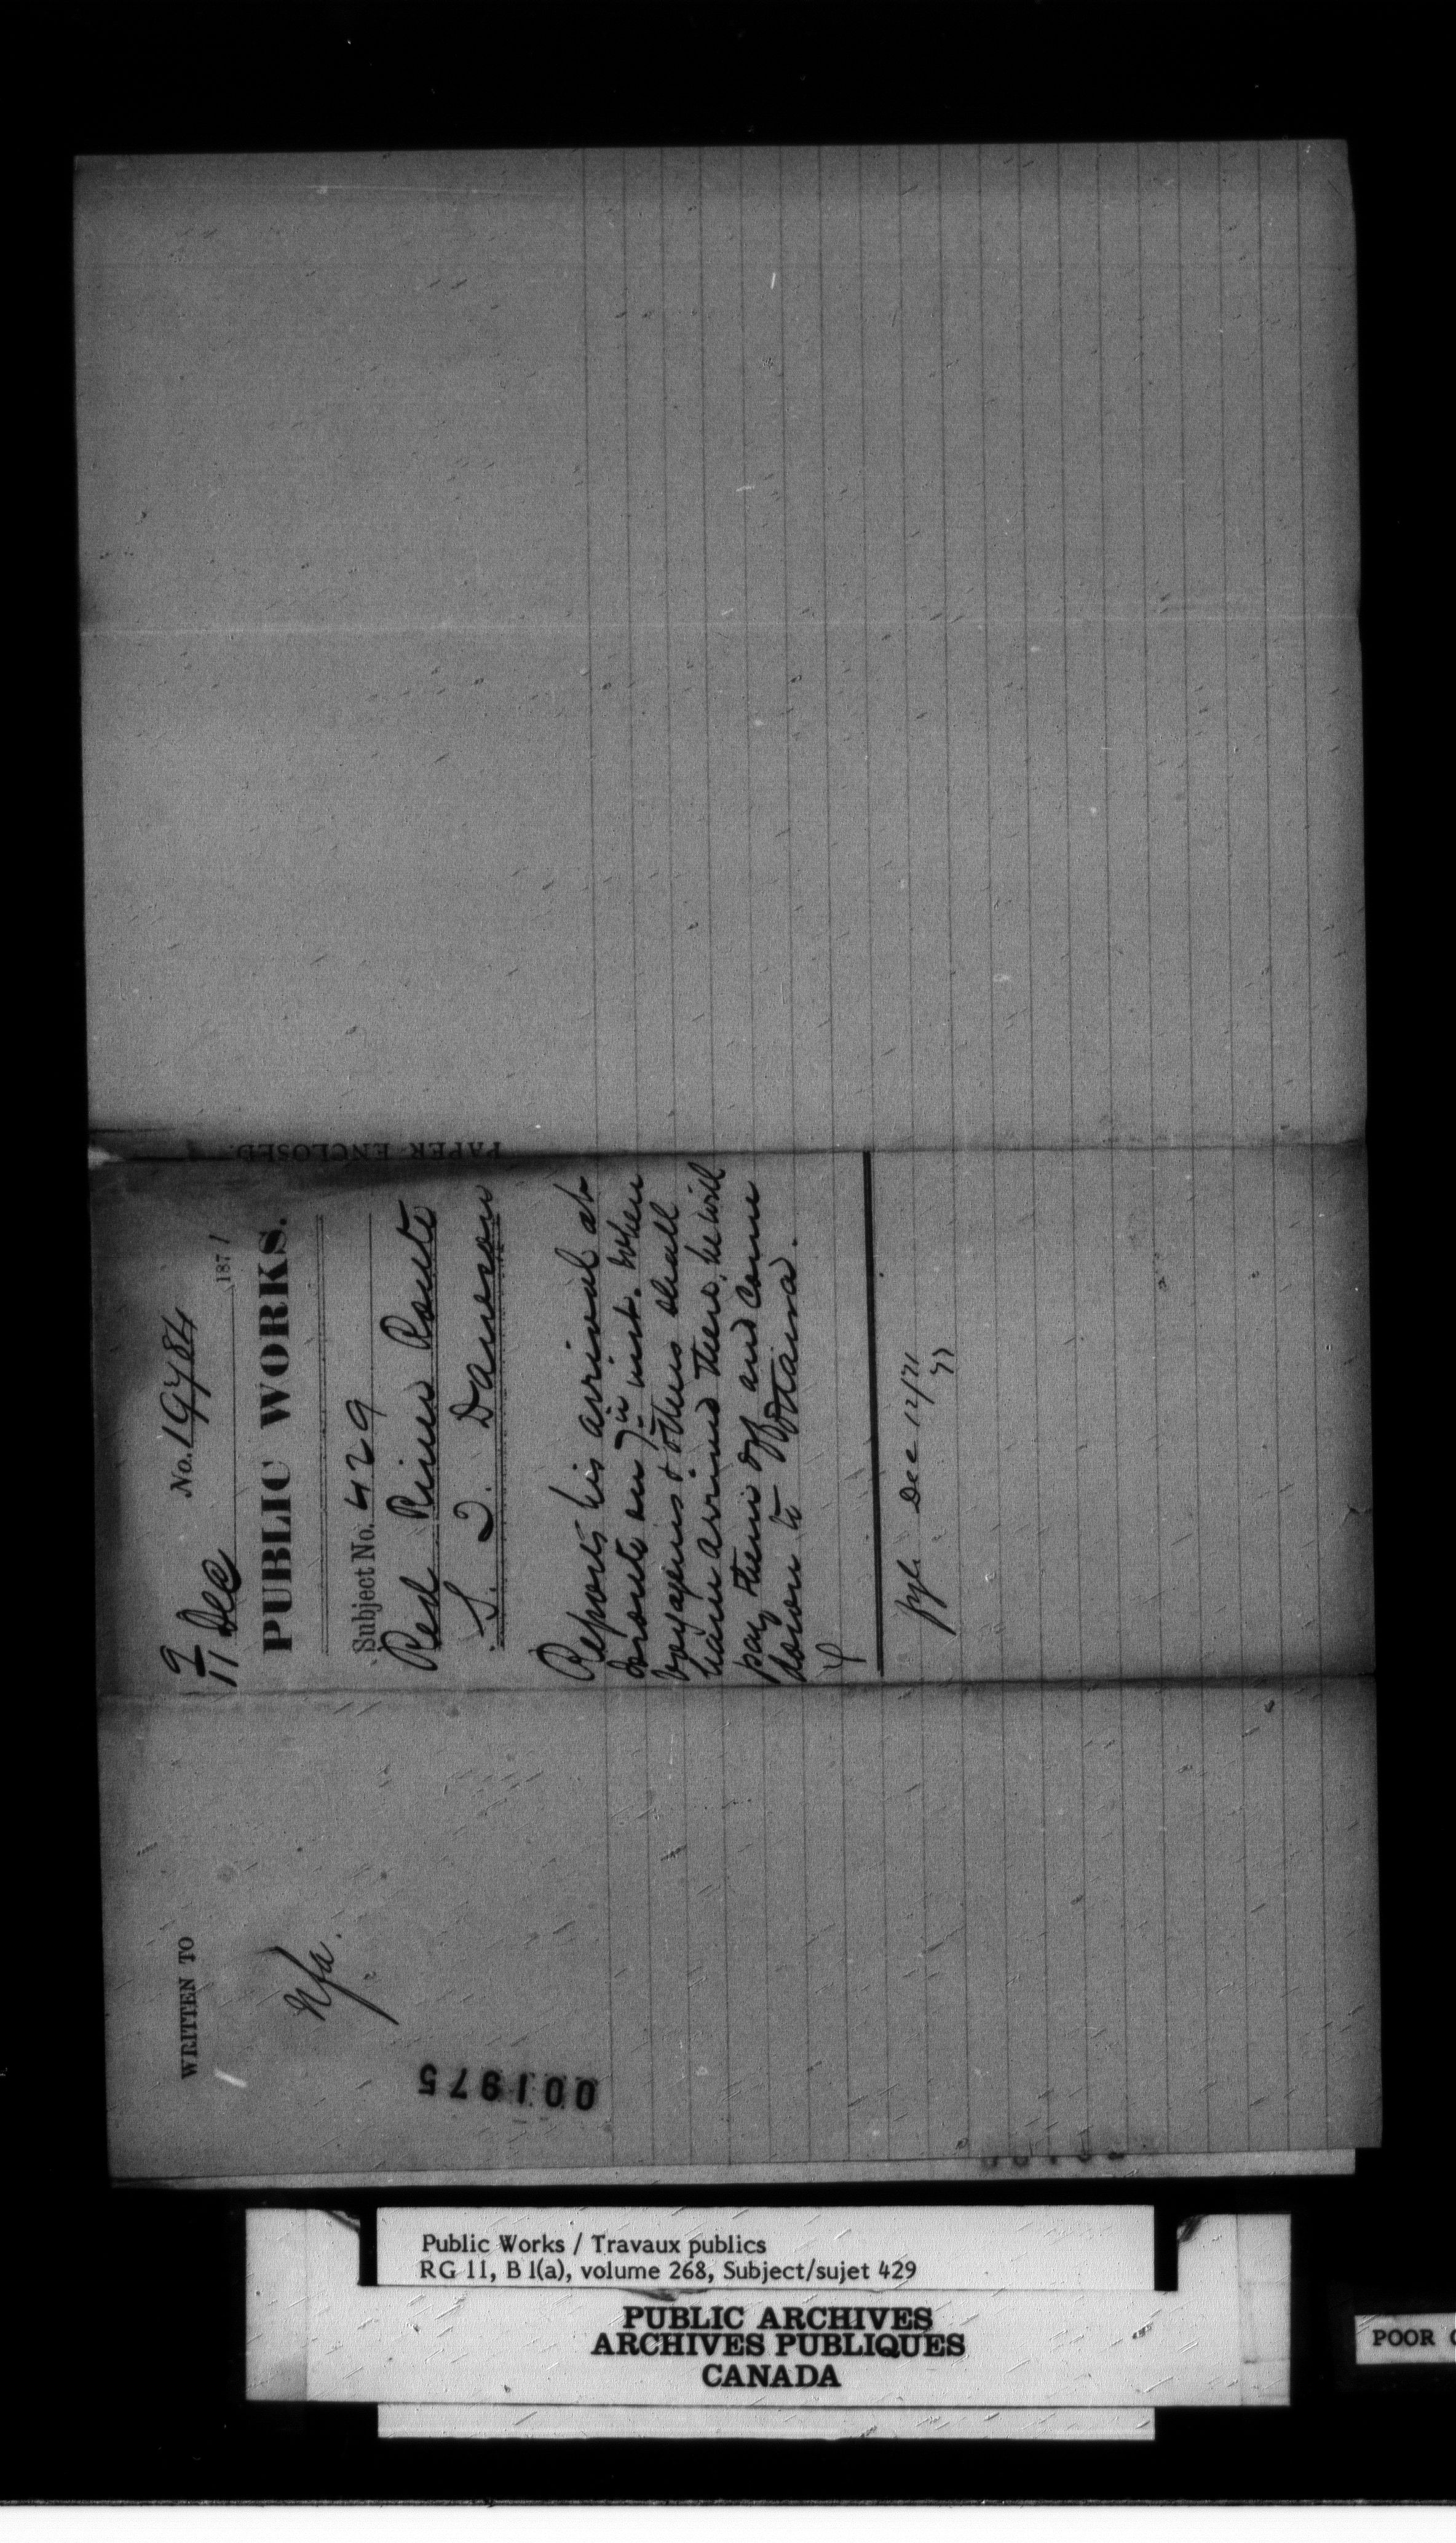 No. 19784
9/11 Dec 1871
PUBLIC WORKS.
Subject No. 429
Red River Route
S. J. Dawson
Reports his arrival at
Toronto on 7th inst. When
voyageurs & others shall
have arrived there, he will
pay them off and come
down to Ottawa.
Dec 12/71
PAPER ENCLOSED.
WRITTEN TO
Nfa.
001975
Public Works / Travaux publics
RG 11, B 1(a), volume 268, Subject/sujet 429
PUBLIC ARCHIVES
ARCHIVES PUBLIQUES
CANADA
POOR